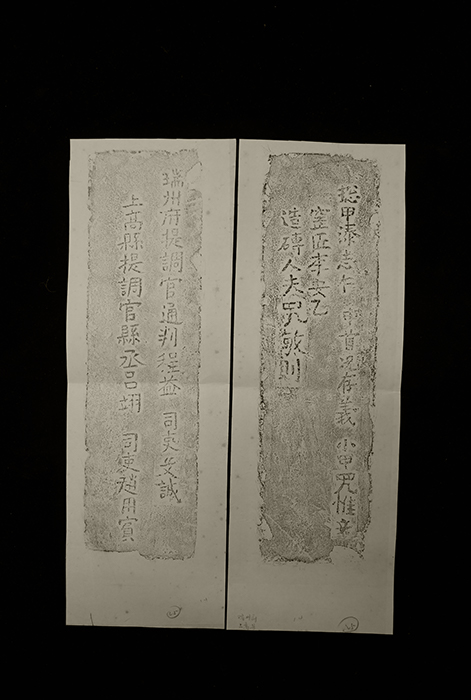 揔甲漆志仁 甲首况存義 小甲咒惟章
窑匠李安乙
造磚人夫咒敏則
瑞州府提調官通判程益 司吏艾誠
上高縣提調官縣丞呂翊 司吏趙用賓